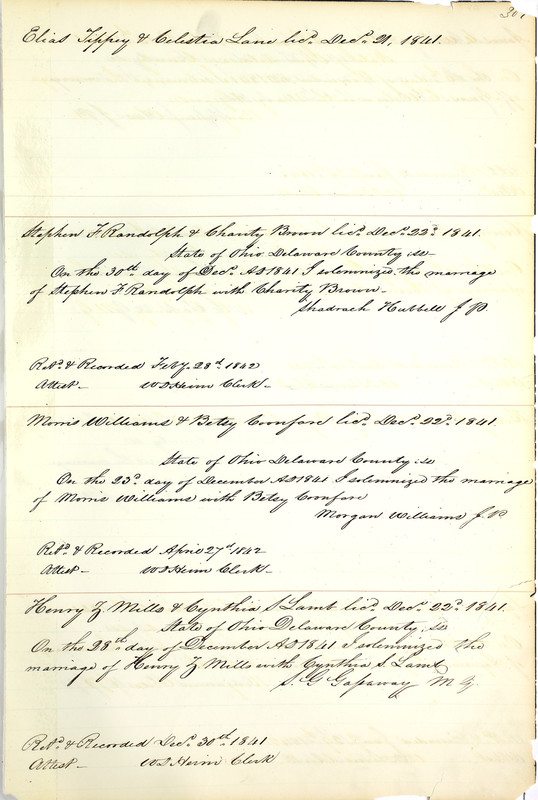 301
Elias Tippey & Celestia Lane licd. Decr. 21, 1841.
Stephen F Randolph & Charity Brown licd. Decr. 22d. 1841.
State of Ohio Delaware County ss
On the 30th day of Decr. AD 1841 I solemnized the marriage
of Stephen F Randolph with Charity Brown
Shadrach Hubbell J P.
Retd. & Recorded Feby. 28th 1842
Attest W D Heim Clerk
Morris Williams & Betsy Comfare licd. Decr. 22d. 1841.
State of Ohio Delaware County ss
On the 23d. day of December AD 1841 I solemnized the marriage
of Morris Williams with Betsy Comfare
Morgan Williams J. P.
Retd. & Recorded April 27th 1842
Attest W D Heim Clerk
Henry Z Mills & Cynthia S Lamb licd. Decr. 22d. 1841.
State of Ohio Delaware County, ss
On the 28th day of December AD 1841 I solemnized the
marriage of Henry Z Mills with Cynthia S. Lamb
S. G Gassaway M G.
Retd. & Recorded Decr. 30th 1841
Attest W D Heim Clerk